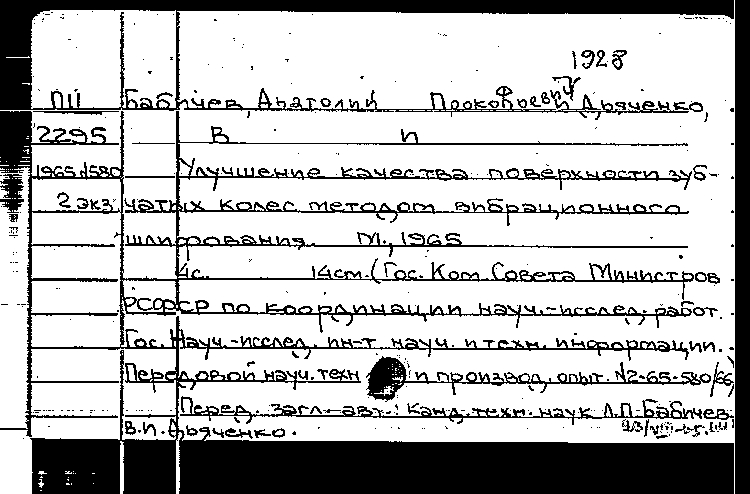 1928
П11 Бабичев, Анатолий Прокофьевич Дьяченко,
2295 В П
1965 d580 Улучшение качества поверхности зуб-
2 экз чатых колес методом вибрационного
шлифования. М., 1965
4с. 14см. (Гос. Ком. Совета Министров
РСФСР по координации науч.-исслед. работ.
Гос. Науч.-исслед. ин-т науч. и техн. информации.
Передовой науч. техн и производ. опыт. N2-65-580/66)
Перед. загл. авт.: канд. техн. наук А.П. Бабичев,
В.П. Дьяченко.